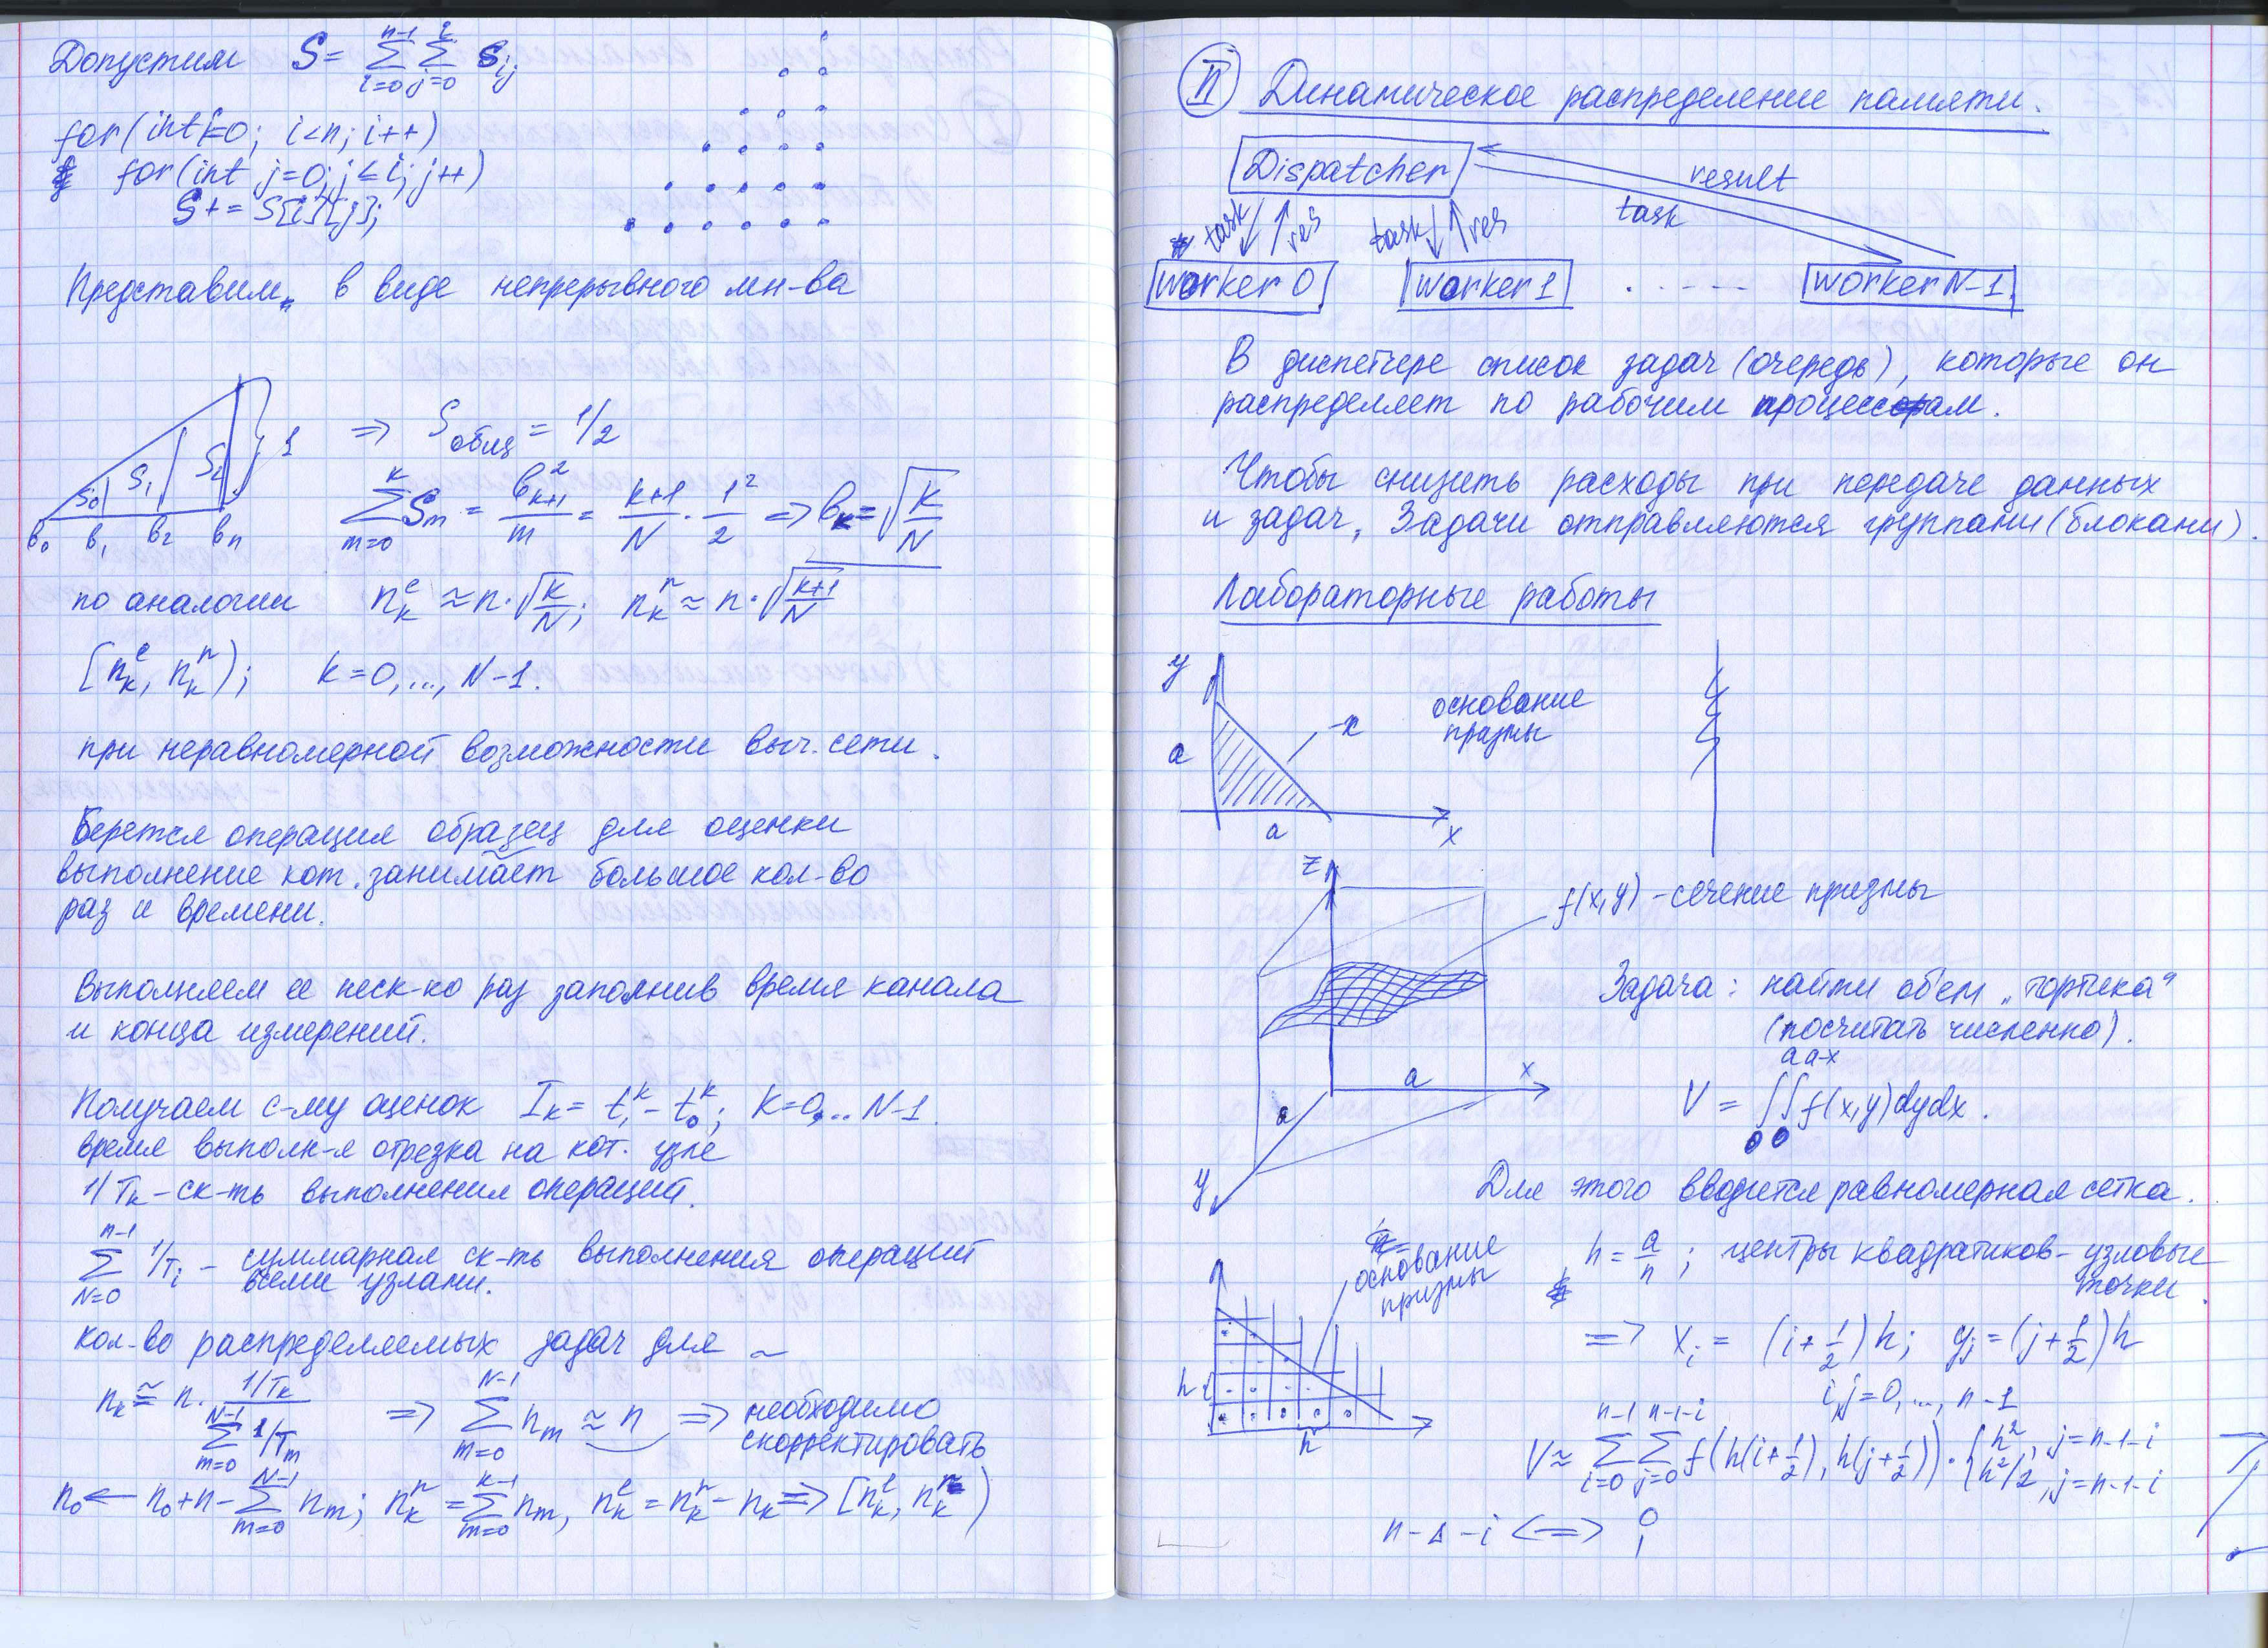 Допустим S = ∑_{i=0}^{n-1} ∑_{j=0}^{i} S_{ij}
for(int i=0; i<n; i++)
for(int j=0; j≤i; j++)
S += S[i][j];
Представим в виде непрерывного мн-ва
S₀ S₁ S₂ 1
b₀ b₁ b₂ bₙ
⇒ S_{общ} = 1/2
∑_{m=0}^{k} S_m = b²_{k+1}/m = (k+1)/N · 1²/2 ⇒ b_k = √(k/N)
по аналогии n_k^e ≈ n·√(k/N); n_k^n ≈ n·√((k+1)/N)
[n_k^e, n_k^n); k=0,..., N-1.
при неравномерной возможности выч. сети.
Берется операция образец для оценки
выполнение кот. занимает большое кол-во
раз и времени.
Выполняем ее неск-ко раз заполнив время канала
и конца измерений.
Получаем с-му оценок T_k = t₁^k - t₀^k; k=0,.. N-1.
время выполн-я отрезка на кот. узле
1/T_k - ск-ть выполнения операций.
∑_{N=0}^{n-1} 1/T_i - суммарная ск-ть выполнения операций
всеми узлами.
кол-во распределяемых задач для ~
n_k ≅ n · (1/T_k)/(∑_{m=0}^{N-1} 1/T_m) ⇒ ∑_{m=0}^{N-1} n_m ≈ n ⇒ необходимо
скорректировать
n₀ ← n₀ + n - ∑_{m=0}^{N-1} n_m; n_k^n = ∑_{m=0}^{k-1} n_m, n_k^e = n_k^n - n_k ⇒ [n_k^e, n_k^n)
II Динамическое распределение памяти.
Dispatcher
result
task
task res task res
worker 0 worker 1 . - - - - worker N-1
В диспетчере список задач (очередь), которые он
распределяет по рабочим процессам.
Чтобы снизить расходы при передаче данных
и задач, Задачи отправляются группами (блоками).
Лабораторные работы
y
a
-x
основание
призмы
a x
z
f(x,y) - сечение призмы
Задача: найти обем „тортика“
(посчитать численно).
a x
a
y
V = ∫₀^a ∫₀^{a-x} f(x,y)dydx.
Для этого вводится равномерная сетка.
основание
призмы
h
h
h = a/n; центры квадратиков - узловые
точки.
⇒ x_i = (i+1/2)h; y_j = (j+1/2)h
i,j=0,..., n-1
V ≈ ∑_{i=0}^{n-1} ∑_{j=0}^{n-1-i} f(h(i+1/2), h(j+1/2)) · { h², j=n-1-i
h²/2, j=n-1-i
n-1-i <=> i